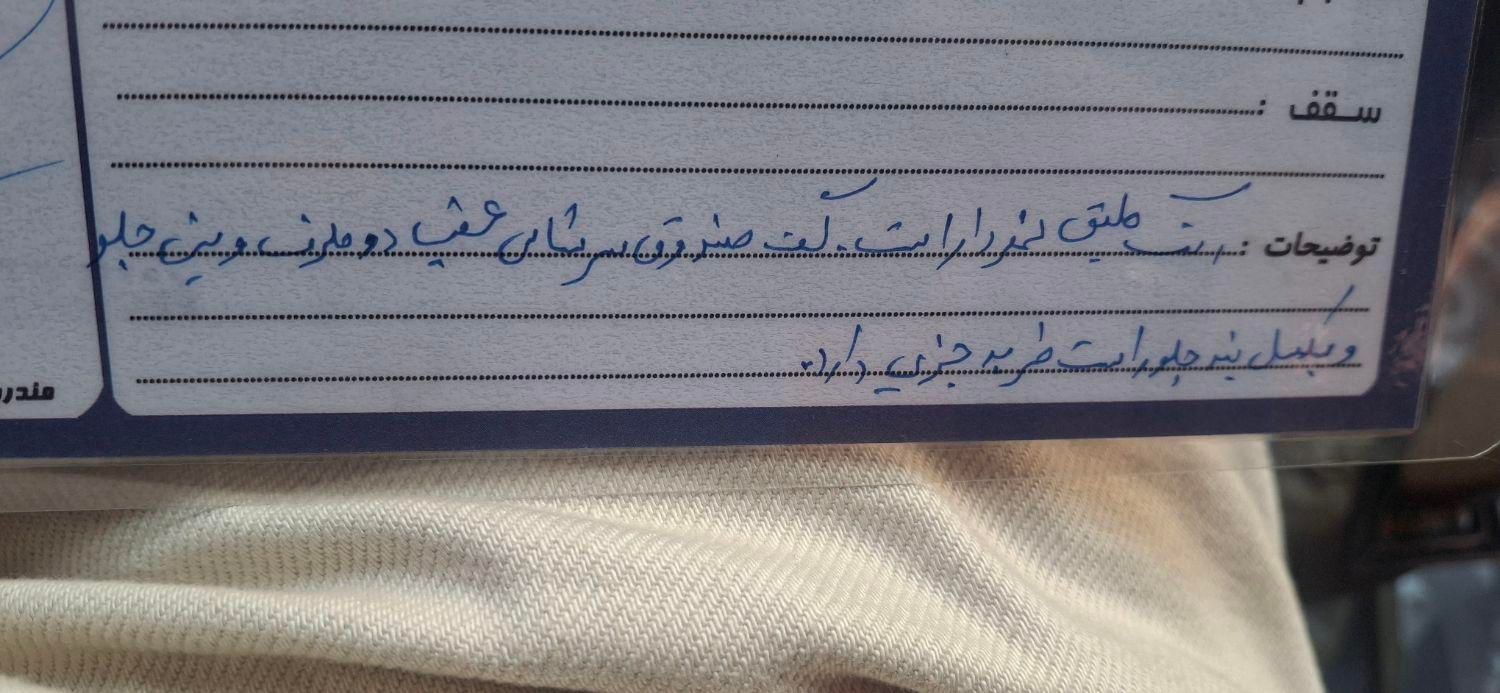 سقف :
توضیحات : رنگ طبق نمودار است. کف صندوق سرشاسی عقب دو طرف و سینی جلو
و بلبل نید جلو راست ضربه جزیی دارد.
مندر